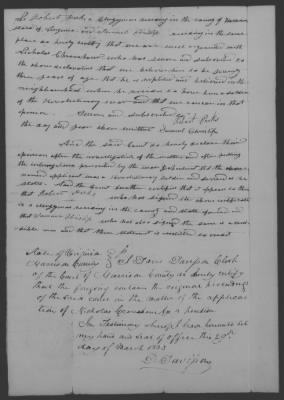 We Robert Parks a Clergyman residing in the County of Harrison
State of Virginia and Samuel Shinn residing in the same
place do hereby certify that we are well acquainted with
Nicholas who has sworn and subscribed to
the above declaration that we believe him to be seventy
three years of age that he is reputed and believed in the
neighbourhood where he resides to have been a soldier
of the revolutionary war and that we concur in that
opinion. Sworn and subscribed
the day and year above written Robert Parks
Samuel
And the said Court do hereby declare their
opinion after the investigation of the matter and after putting
the interrogatories prescribed by the war department that the above
named applicant was a Revolutionary Soldier and served as he
states. And the Court further certifies that it appears to them
that Robert Parks who has signed the above certificate
is a clergyman residing in the county and state aforesaid and
that Samuel who has also signed the same is a cre-
dible man and that their statement is entitled to credit
State of Virginia
Harrison County I Davis Clerk
of the Court of Harrison County do hereby certify
that the foregoing contains the original proceedings
of the said Court in the matter of the applica-
tion of Nicholas for a pension
In Testimony whereof I have hereunto set
my hand and seal of office this 29th
day of March 1833
D. Davisson